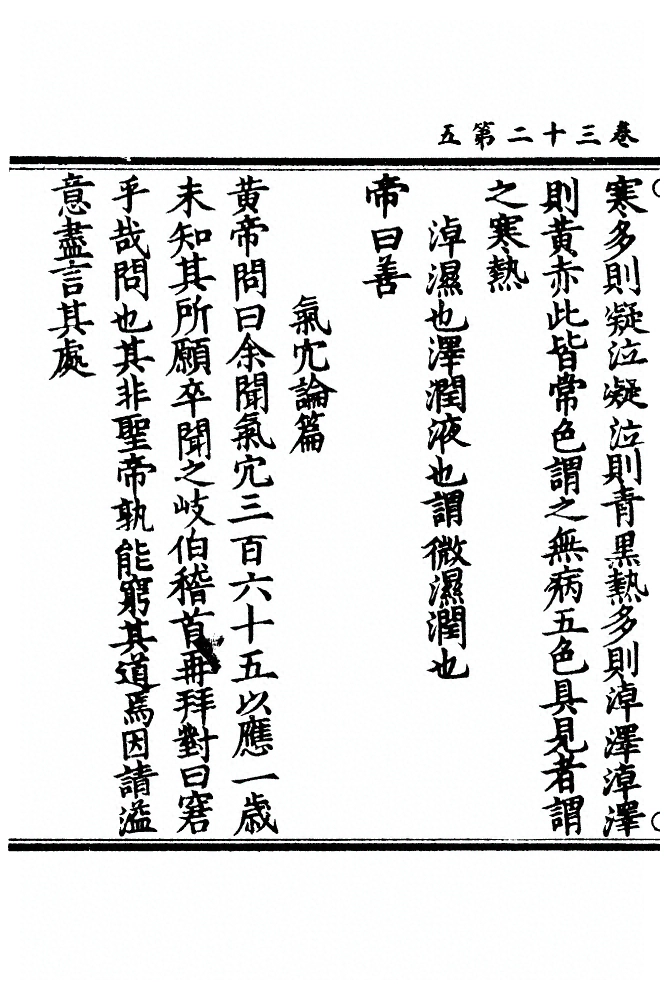 卷三十二第五
寒多則凝泣凝泣則青黑熱多則淖澤淖澤
則黃赤此皆常色謂之無病五色具見者謂
之寒熱
淖濕也澤潤液也謂微濕潤也
帝曰善
氣穴論篇
黃帝問曰余聞氣穴三百六十五以應一歲
未知其所願卒聞之岐伯稽首再拜對曰窘
乎哉問也其非聖帝孰能窮其道焉因請溢
意盡言其處